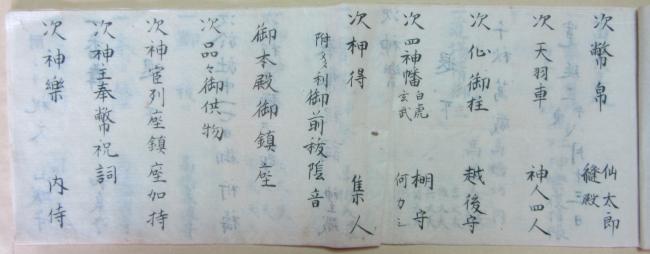 次 幣帛 仙太郎 縫殿
次 天羽車 神人四人
次 仏御柱 越後守
次 四神幡 白虎 玄武 棚守 何力之
次 神得 集人
附多利御前祓陰音
御本殿御鎮座
次 品々御供物
次 神官列座鎮座加持
次 神主奉幣祝詞
次 神樂 内侍